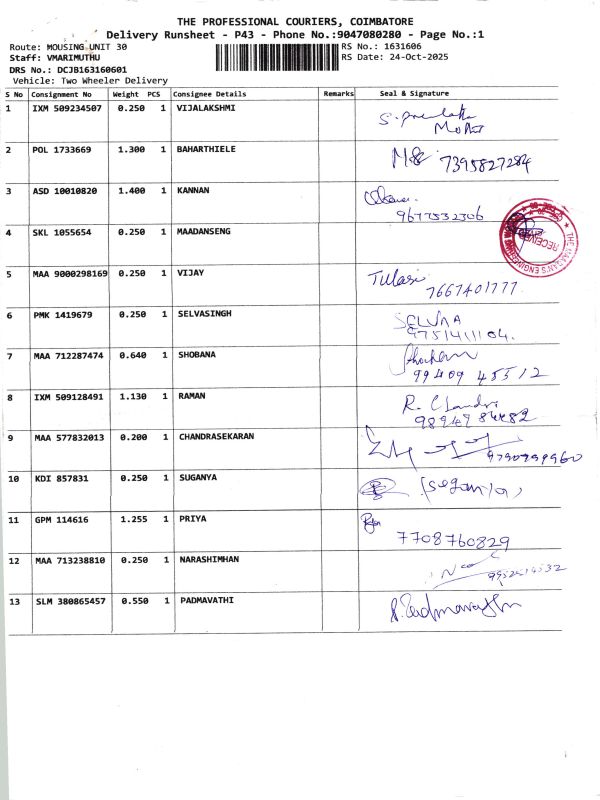 THE PROFESSIONAL COURIERS, COIMBATORE
Delivery Runsheet - P43 - Phone No.:9047080280 - Page No.:1
Route: MOUSING UNIT 30
RS No.: 1631606
Staff: VMARIMUTHU
RS Date: 24-Oct-2025
DRS No.: DCJB163160601
Vehicle: Two Wheeler Delivery
S No Consignment No Weight PCS Consignee Details Remarks Seal & Signature
1 IXM 509234507 0.250 1 VIJALAKSHMI
2 POL 1733669 1.300 1 BAHARTHIELE 7395827284
3 ASD 10010820 1.400 1 KANNAN
9677532306
4 SKL 1055654 0.250 1 MAADANSENG
RECEIVED
5 MAA 9000298169 0.250 1 VIJAY Tulasi
7667401777
6 PMK 1419679 0.250 1 SELVASINGH SELVAA
9751411104.
7 MAA 712287474 0.640 1 SHOBANA
99409 45512
8 IXM 509128491 1.130 1 RAMAN R. Chandri
9 MAA 577832013 0.200 1 CHANDRASEKARAN
10 KDI 857831 0.250 1 SUGANYA
11 GPM 114616 1.255 1 PRIYA
7708760829
12 MAA 713238810 0.250 1 NARASHIMHAN
13 SLM 380865457 0.550 1 PADMAVATHI